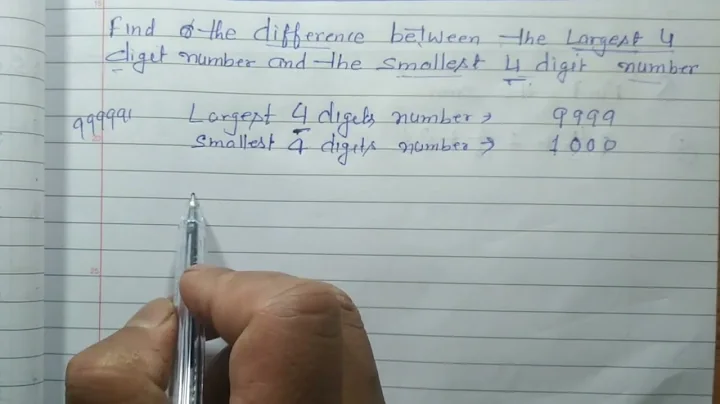 Find the difference between the Largest 4
digit number and the smallest 4 digit number
Largest 4 digits number → 9999
Smallest 4 digits number → 1000